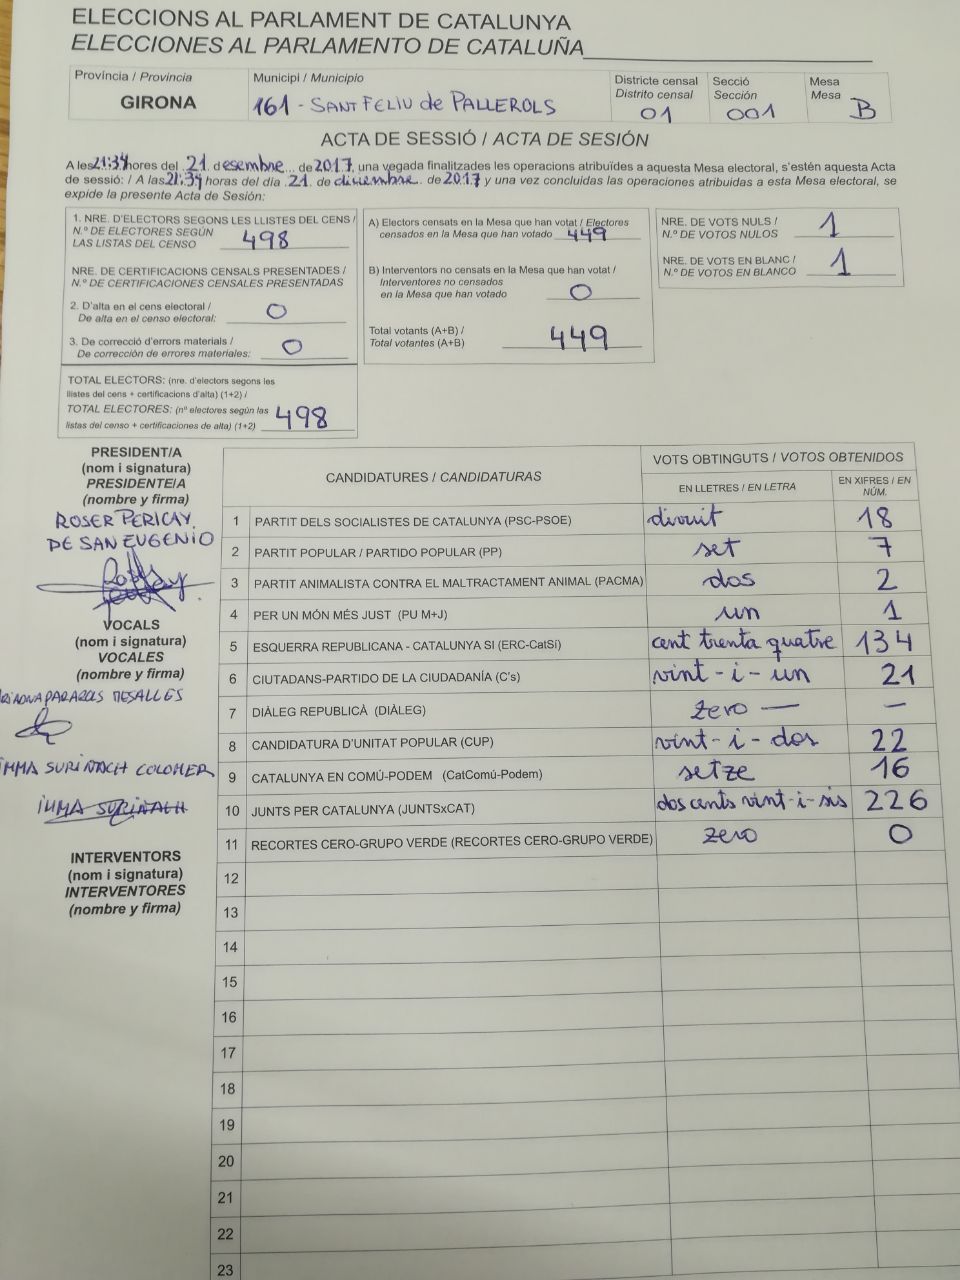 ELECCIONS AL PARLAMENT DE CATALUNYA
ELECCIONES AL PARLAMENTO DE CATALUÑA
Província / Provincia
GIRONA
Municipi / Municipio
161 - SANT FELIU de PALLEROLS
Districte censal
Distrito censal
01
Secció
Sección
001
Mesa
Mesa
B
ACTA DE SESSIÓ / ACTA DE SESIÓN
A les 21:34 hores del 21 desembre de 2017, una vegada finalitzades les operacions atribuïdes a aquesta Mesa electoral, s'estén aquesta Acta
de sessió: / A las 21:34 horas del día 21 de diciembre de 2017 y una vez concluidas las operaciones atribuidas a esta Mesa electoral, se
expide la presente Acta de Sesión:
1. NRE. D'ELECTORS SEGONS LES LLISTES DEL CENS /
N.º DE ELECTORES SEGÚN
LAS LISTAS DEL CENSO 498
NRE. DE CERTIFICACIONS CENSALS PRESENTADES /
N.º DE CERTIFICACIONES CENSALES PRESENTADAS
2. D'alta en el cens electoral /
De alta en el censo electoral: 0
3. De correcció d'errors materials /
De corrección de errores materiales: 0
TOTAL ELECTORS: (nre. d'electors segons les
llistes del cens + certificacions d'alta) (1+2) /
TOTAL ELECTORES: (nº electores según las
listas del censo + certificaciones de alta) (1+2) 498
A) Electors censats en la Mesa que han votat / Electores
censados en la Mesa que han votado 449
B) Interventors no censats en la Mesa que han votat /
Interventores no censados
en la Mesa que han votado 0
Total votants (A+B) /
Total votantes (A+B) 449
NRE. DE VOTS NULS /
N.º DE VOTOS NULOS 1
NRE. DE VOTS EN BLANC /
N.º DE VOTOS EN BLANCO 1
PRESIDENT/A
(nom i signatura)
PRESIDENTE/A
(nombre y firma)
ROSER PERICAY
DE SAN EUGENIO
VOCALS
(nom i signatura)
VOCALES
(nombre y firma)
IMMA SURIÑACH COLOMER
IMMA SURIÑACH
INTERVENTORS
(nom i signatura)
INTERVENTORES
(nombre y firma)
CANDIDATURES / CANDIDATURAS
VOTS OBTINGUTS / VOTOS OBTENIDOS
EN LLETRES / EN LETRA
EN XIFRES / EN
NÚM.
1 PARTIT DELS SOCIALISTES DE CATALUNYA (PSC-PSOE) divuit 18
2 PARTIT POPULAR / PARTIDO POPULAR (PP) set 7
3 PARTIT ANIMALISTA CONTRA EL MALTRACTAMENT ANIMAL (PACMA) dos 2
4 PER UN MÓN MÉS JUST (PU M+J) un 1
5 ESQUERRA REPUBLICANA - CATALUNYA SI (ERC-CatSí) cent trenta quatre 134
6 CIUTADANS-PARTIDO DE LA CIUDADANÍA (C's) vint-i-un 21
7 DIÀLEG REPUBLICÀ (DIÀLEG) zero — —
8 CANDIDATURA D'UNITAT POPULAR (CUP) vint-i-dos 22
9 CATALUNYA EN COMÚ-PODEM (CatComú-Podem) setze 16
10 JUNTS PER CATALUNYA (JUNTSxCAT) dos cents vint-i-sis 226
11 RECORTES CERO-GRUPO VERDE (RECORTES CERO-GRUPO VERDE) zero 0
12
13
14
15
16
17
18
19
20
21
22
23